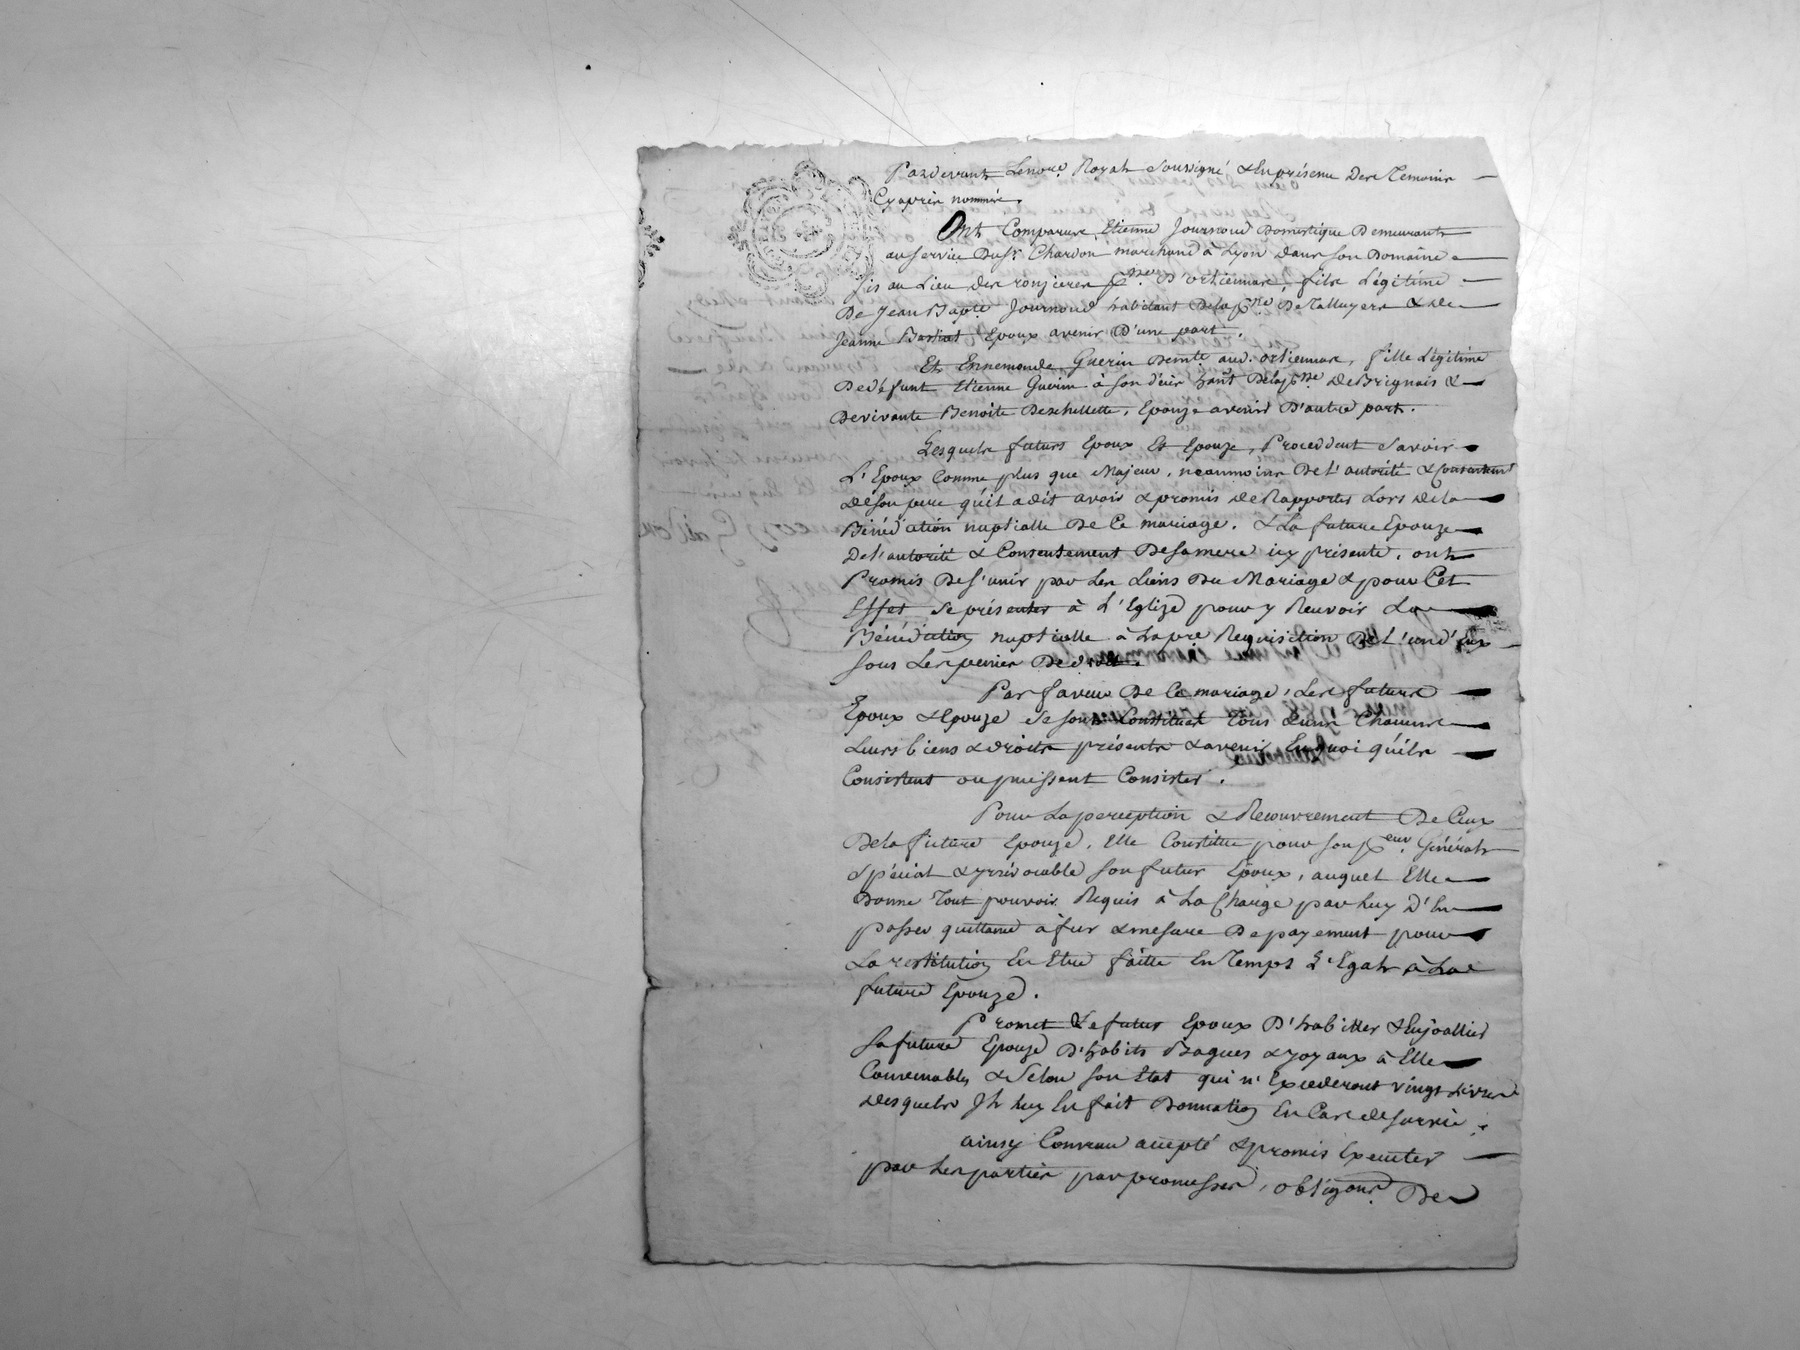 Pardevant Lenore. Royal Soussigné & En présence Des Temoins
Cy aprés nommés.
Ont Comparus, Etienne Journoud Domestique Demeurant
au service Du Sr. Chardon marchand à Lyon dans son Domaine
sis au Lieu des ronzieres psse. D'orliennas, fils Légitime
De Jean Bapte. Journoud habitant De la psse De Talluyers & de
Jeanne Epoux avenir D'une part.
Et Ennemonde Guerin Demte aud. orliennas, fille Légitime
De défunt Etienne Guerin à son décès hant De la psse de Brignais &
De vivante Benoite Deschellette, Epouze avenir D'autre part.
Lesquels futurs Epoux Et Epouze, Procedent Savoir
L'Epoux Comme plus que Majeur, neanmoins De L'autorité & Consentemt
de son pere qu'il a dit avoir & promis de Rapporter Lors de la
Bénédiction nuptialle De Ce mariage. & La future Epouze
De l'autorité & Consentement De sa mere icy présente, ont
Promis De s'unir par Les Liens Du Mariage & pour Cet
Effet se présenter à L'Eglize pour y Recevoir La
Bénédiction nuptialle à La pre Requisition De L'un d'Eux
sous Les peines De droit.
Par faveur De Ce mariage, Les futurs
Epoux & Epouze se sont Constitués Tous & uns Chacuns
Leurs biens & droits présents & avenir En quoi qu'ils
Consistent ou puissent Consister.
Pour La perception & Recouvrement De Ceux
De la future Epouze, Elle Constitue pour son peur. Général
spécial & yrrévocable son futur Epoux, auquel Elle
Donne Tout pouvoir Requis à La Charge par Luy D'En
passer quittance à fur & mesure De payement pour
La restitution En Etre faitte En Temps L'Egal à La
future Epouze.
Promet Le futur Epoux D'habiller & Enjoallier
sa future Epouze D'habits Bagues & yoyaux à Elle
Convenables & Selon son Etat qui n'Excederont vingt Livres
desquels Il Luy En fait Donnation En Cas de survie.
ainsy Convenu accepté & promis Executer
par Les parties par promesses, obligons. De